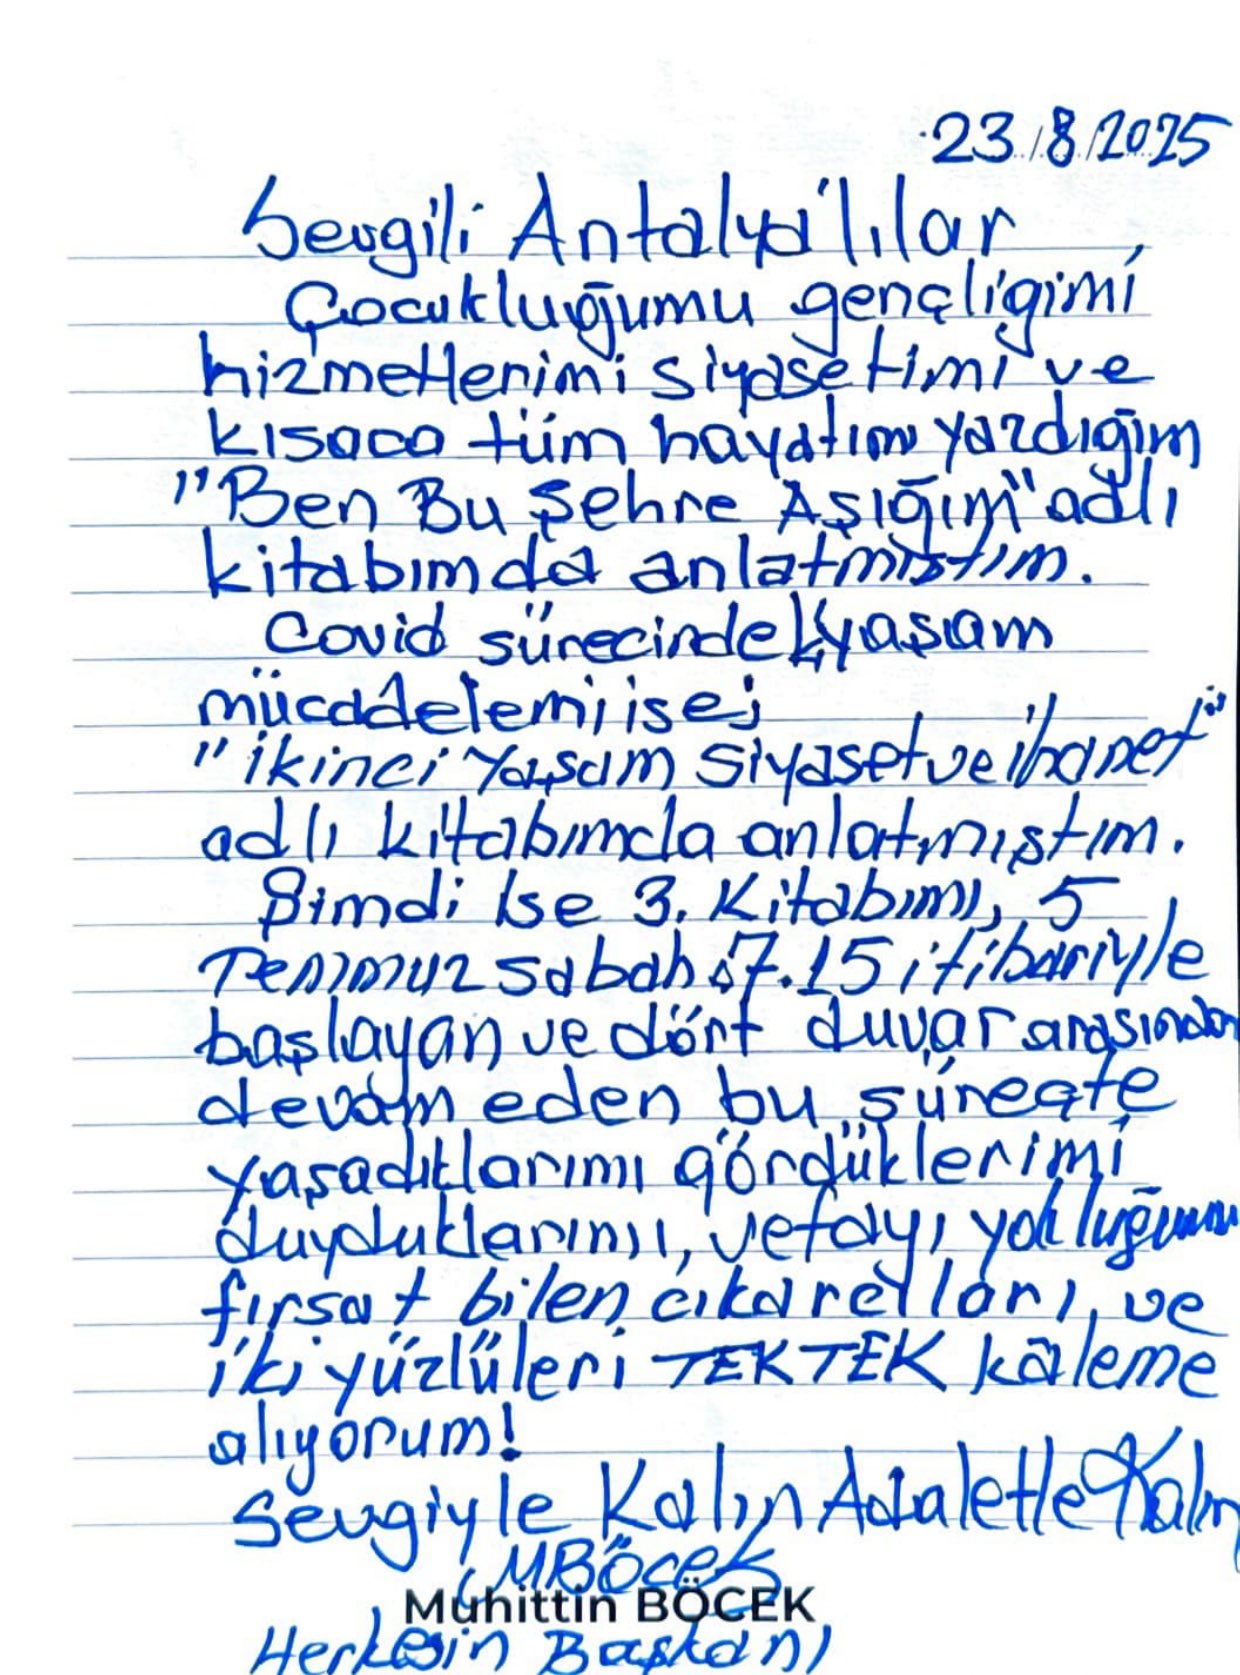 23/8/2025
Sevgili Antalya'lılar
Çocukluğumu gençliğimi
hizmetlerimi siyasetimi ve
kısaca tüm hayatımı yazdığım
"Ben Bu Şehre Aşığım" adlı
kitabımda anlatmıştım.
Covid sürecindeki yaşam
mücadelemi ise;
"İkinci Yaşam Siyaset ve ihanet"
adlı kitabımda anlatmıştım.
Şimdi Ise 3. Kitabımı, 5
Temmuz sabah 07.15 itibariyle
başlayan ve dört duvar arasından
devam eden bu süreçte
yaşadıklarımı gördüklerimi
duyduklarımı, vefayı yokluğumu
fırsat bilen çıkarcıları, ve
iki yüzlüleri TEK TEK kaleme
alıyorum!
Sevgiyle Kalın Adaletle Kalın
MBÖcek
Muhittin BÖCEK
Herkesin Başkanı